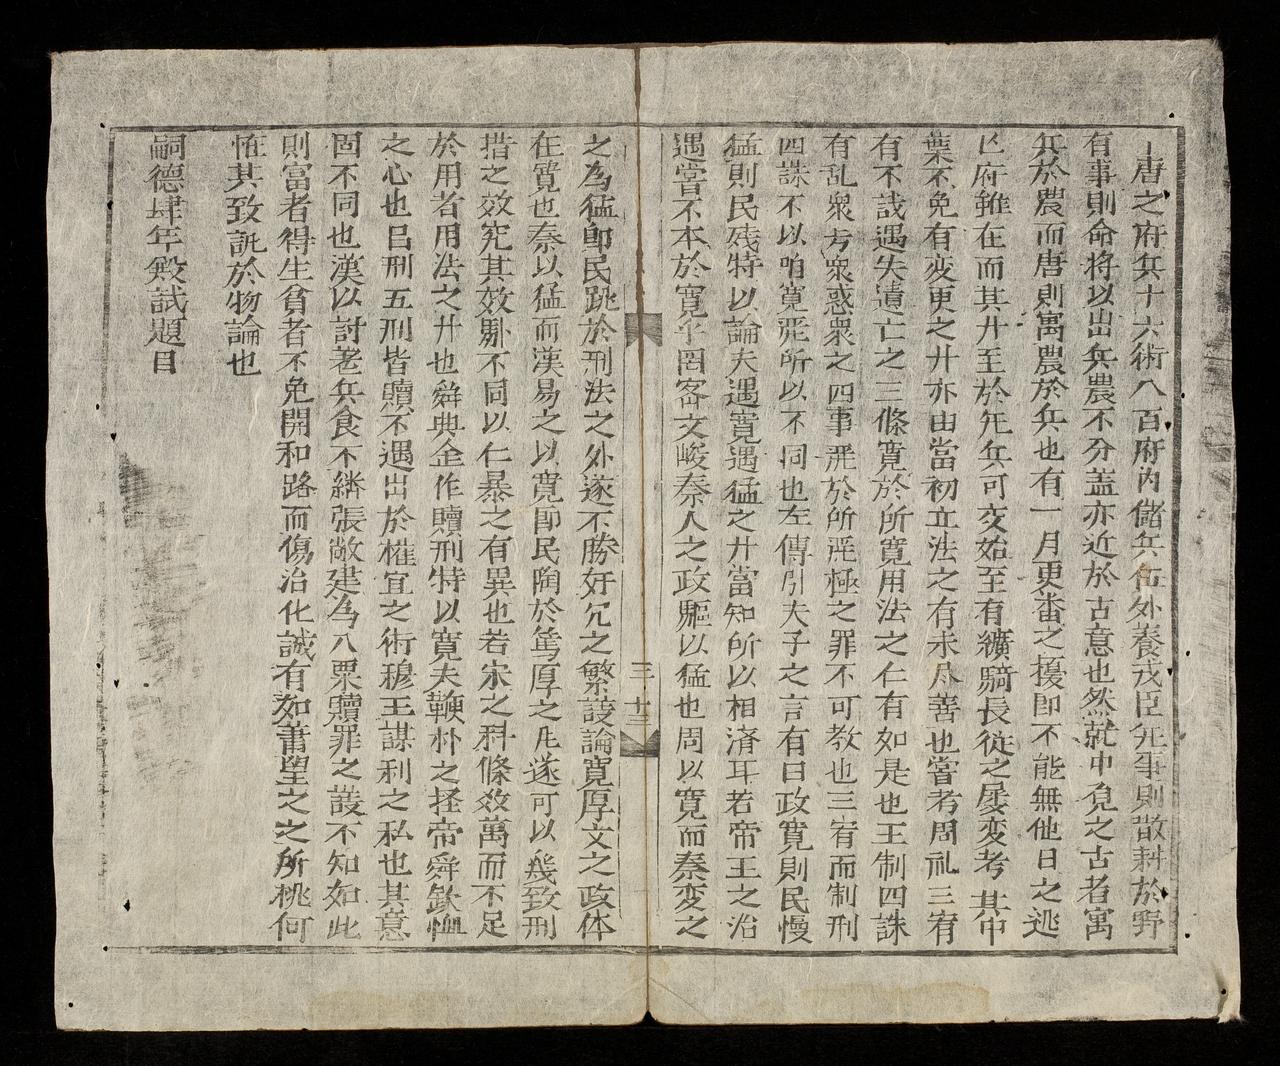 唐之府兵十六術八百府内儲兵伍外養戎臣無事則散耕於野
有事則命將以出兵農不分盖亦近於古意也然就中覓之古者寓
兵於農而唐則寓農於兵也有一月更番之擾即不能無他日之逃
亡府雖在而其廾至於無兵可交始至有纊騎長從之屡変考其中
葉不免有变更之廾亦由當初立法之有未尽善也嘗考周礼三宥
有不哉遇失遺亡之三條寬於所寬用法之仁有如是也王制四誅
有乱衆方衆惑衆之四事罪於所罪極之罪不可教也三宥而制刑
四誅不以咱寬罪所以不同也左傳引夫子之言有曰政寬則民慢
猛則民残特以論夫遇寬遇猛之廾當知所以相済耳若帝王之治
遇嘗不本於寬乎罔密文峻秦人之政驅以猛也周以寬而秦变之
之為猛即民跳於刑法之外遂不勝奸宄之繁議論寬厚文之政体
在寬也秦以猛而漢易之以寬即民陶於篤厚之凡遂可以幾致刑
措之效究其效雖不同以仁暴之有異也若宋之科條效萬而不足
於用者用法之廾也舜典金作贖刑特以寬夫鞭朴之挃帝舜欽恤
之心也吕刑五刑皆贖不過出於權宜之術穆王謀利之私也其意
固不同也漢以討羌兵食不継張敞建為入粟贖罪之議不知如此
則富者得生貧者不免開和路而傷治化誠有如蕭望之之所桃何
恠其致訛於物論也
嗣德肆年殿試題目
三 十三